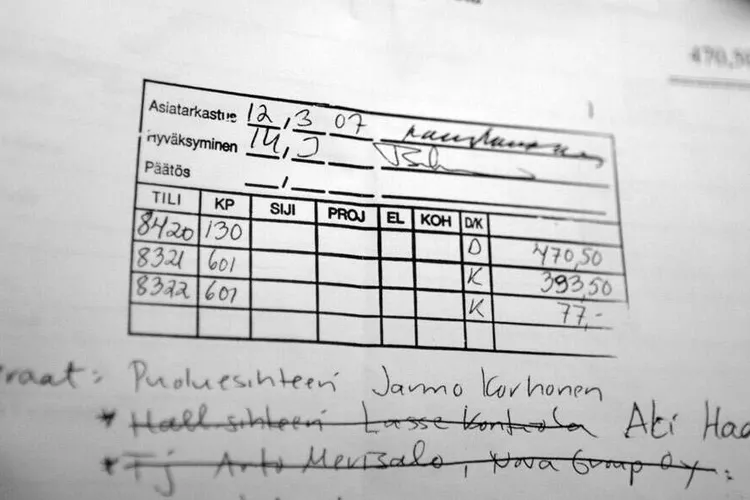 470,50
Asiatarkastus 12,3 07
Hyväksyminen 14,3
Päätös
TILI KP SIJI PROJ EL KOH D/K
8420 130 D 470,50
8321 601 K 393,50
8322 601 K 77,-
raat: Puoluesihteeri Jarmo Korhonen
* Hall.sihteeri Lasse Kontiola Aki Haa
* Tj Arto Merisalo, Nova Group Oy.